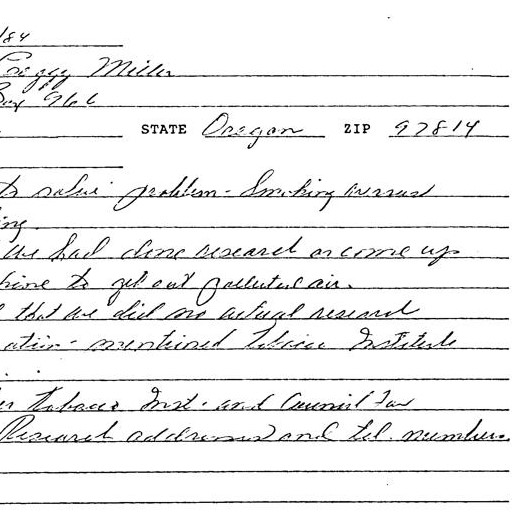 /84
Peggy Miller
Box 966
STATE Oregon ZIP 97814
to solve problem - Smoking versus
ing.
we had done research or come up
hine to get out polluted air.
that we did no actual research
ation - mentioned Tobacco Institute
Tobacco Inst. and Council For
Research addresses and tel. numbers